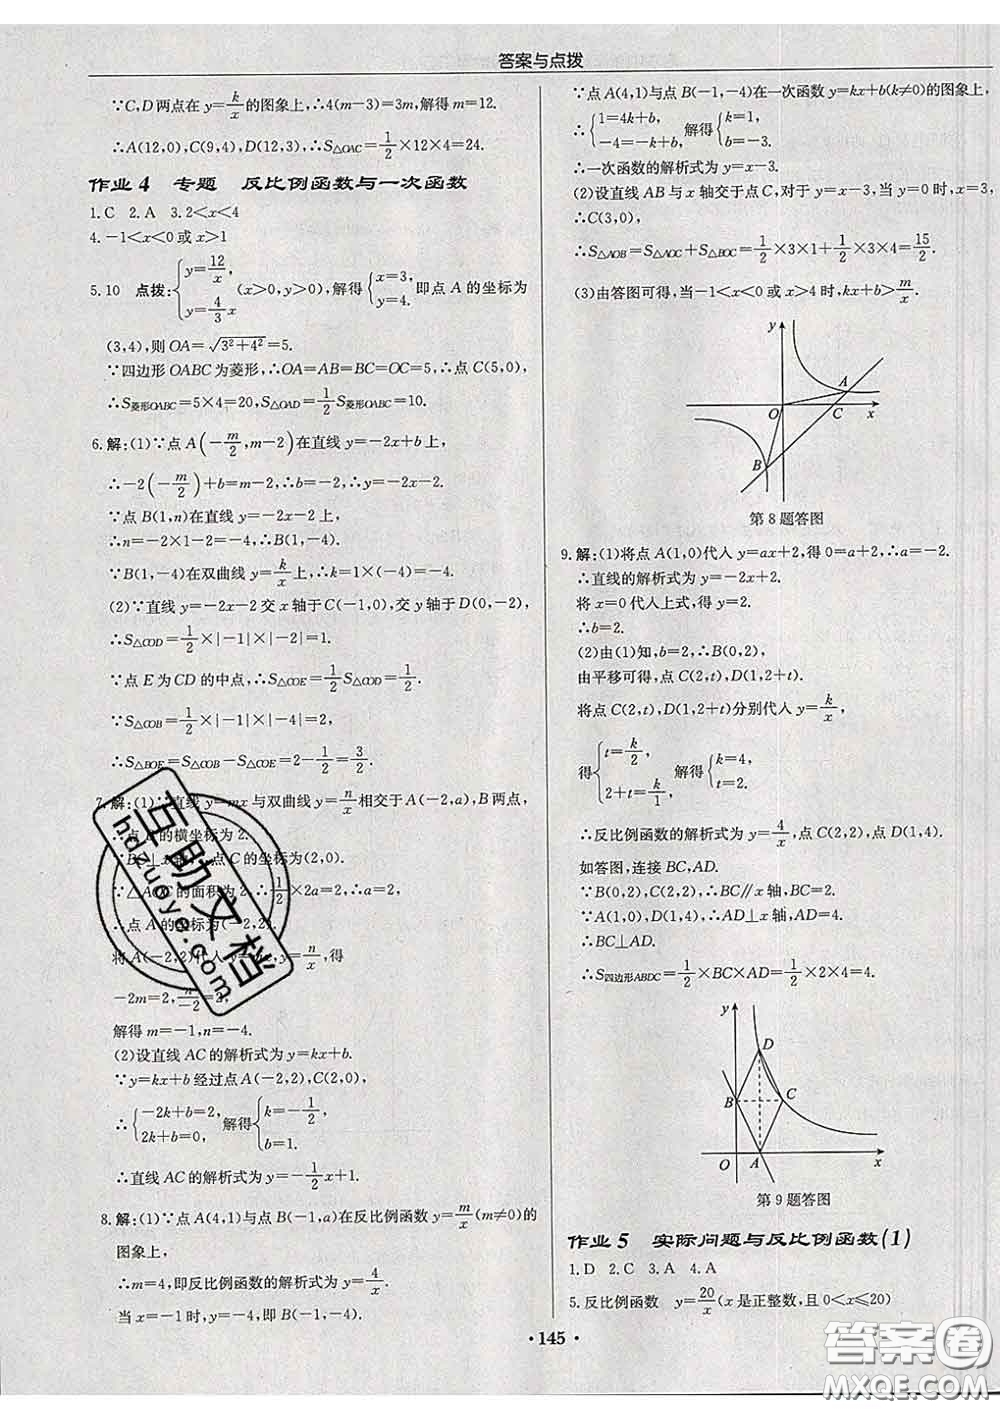 答案与点拨
∵C,D两点在y=k/x的图象上,∴4(m-3)=3m,解得m=12.
∴A(12,0),C(9,4),D(12,3),∴S△OAC=1/2×12×4=24.
作业4 专题 反比例函数与一次函数
1.C 2.A 3.2<x<4
4.-1<x<0或x>1
5.10 点拨:{y=12/x, y=4/3x (x>0,y>0),解得{x=3, y=4. 即点A的坐标为
(3,4),则OA=√3²+4²=5.
∵四边形OABC为菱形,∴OA=AB=BC=OC=5,∴点C(5,0),
∴S菱形OABC=5×4=20,S△OAD=1/2S菱形OABC=10.
6.解:(1)∵点A(-m/2,m-2)在直线y=-2x+b上,
∴-2(-m/2)+b=m-2,∴b=-2,∴y=-2x-2.
∵点B(1,n)在直线y=-2x-2上,
∴n=-2×1-2=-4,∴B(1,-4).
∵B(1,-4)在双曲线y=k/x上,∴k=1×(-4)=-4.
(2)∵直线y=-2x-2交x轴于C(-1,0),交y轴于D(0,-2),
∴S△COD=1/2×|-1|×|-2|=1.
∵点E为CD的中点,∴S△COE=1/2S△COD=1/2.
∵S△COB=1/2×|-1|×|-4|=2.
∴S△BOE=S△COB-S△COE=2-1/2=3/2.
7.解:(1)∵直线y=mx与双曲线y=n/x相交于A(-2,a),B两点,
∴点B的横坐标为2.
∵BC⊥x轴,∴点C的坐标为(2,0).
∵△AOC的面积为2,∴1/2×2a=2,∴a=2.
∴点A的坐标为(-2,2).
将A(-2,2)代入y=mx,y=n/x,得
-2m=2,n/-2=2,
解得m=-1,n=-4.
(2)设直线AC的解析式为y=kx+b.
∵y=kx+b经过点A(-2,2),C(2,0),
∴{-2k+b=2, 2k+b=0, 解得{k=-1/2, b=1.
∴直线AC的解析式为y=-1/2x+1.
8.解:(1)∵点A(4,1)与点B(-1,a)在反比例函数y=m/x(m≠0)的
图象上,
∴m=4,即反比例函数的解析式为y=4/x.
当x=-1时,y=-4,即B(-1,-4).
∵点A(4,1)与点B(-1,-4)在一次函数y=kx+b(k≠0)的图象上,
∴{1=4k+b, -4=-k+b, 解得{k=1, b=-3.
∴一次函数的解析式为y=x-3.
(2)设直线AB与x轴交于点C,对于y=x-3,当y=0时,x=3,
∴C(3,0),
∴S△AOB=S△AOC+S△BOC=1/2×3×1+1/2×3×4=15/2.
(3)由答图可得,当-1<x<0或x>4时,kx+b>m/x.
y
A
O
C
x
B
第8题答图
9.解:(1)将点A(1,0)代入y=ax+2,得0=a+2,∴a=-2.
∴直线的解析式为y=-2x+2.
将x=0代入上式,得y=2.
∴b=2.
(2)由(1)知,b=2,∴B(0,2),
由平移可得,点C(2,t),D(1,2+t).
将点C(2,t),D(1,2+t)分别代入y=k/x,
得{t=k/2, 2+t=k/1, 解得{k=4, t=2.
∴反比例函数的解析式为y=4/x,点C(2,2),点D(1,4).
如答图,连接BC,AD.
∵B(0,2),C(2,2),∴BC∥x轴,BC=2.
∵A(1,0),D(1,4),∴AD⊥x轴,AD=4.
∴BC⊥AD.
∴S四边形ABDC=1/2×BC×AD=1/2×2×4=4.
y
D
B
C
O
A
x
第9题答图
作业5 实际问题与反比例函数(1)
1.D 2.C 3.A 4.A
5.反比例函数 y=20/x(x是正整数,且0<x≤20)
• 145 •
互助文档
hdzuoye.com
答案圈
MXQE.COM